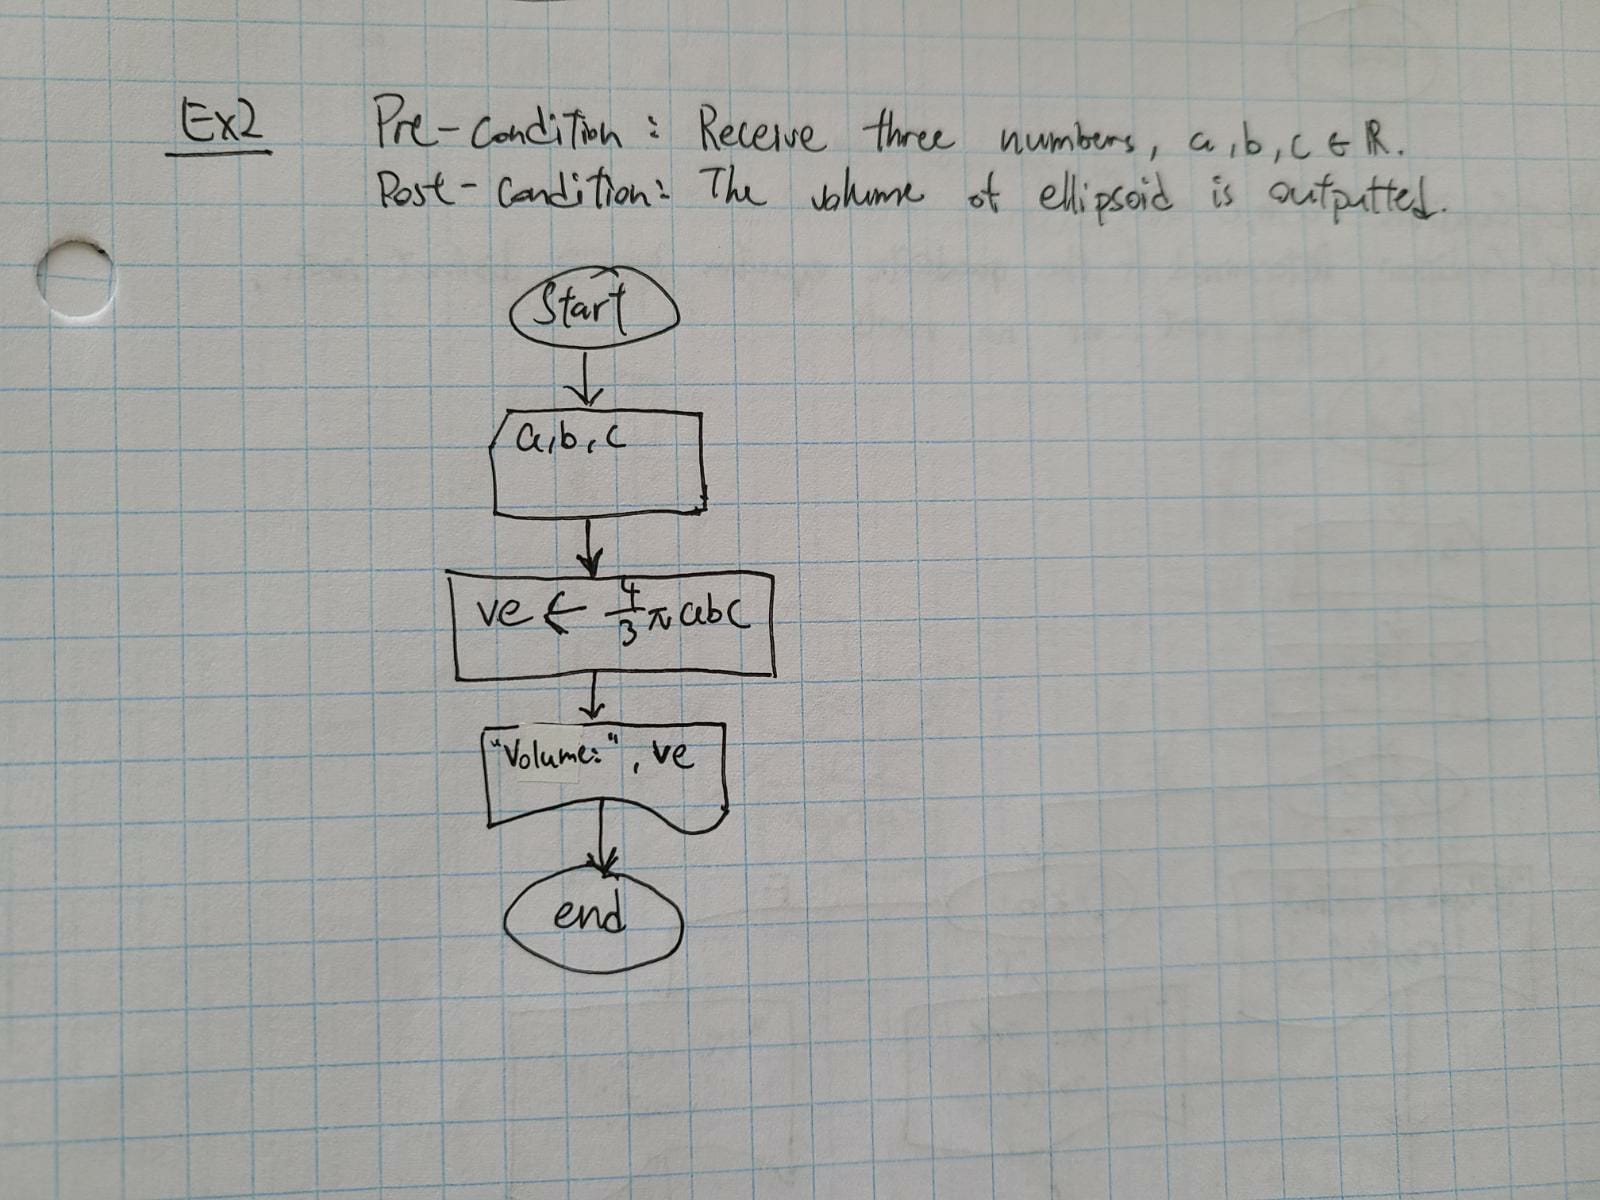 Ex2 Pre-Condition: Receive three numbers, a,b,c ∈ ℝ.
Post-Condition: The volume of ellipsoid is outputted.
Start
a,b,c
ve ← 4/3 π abc
"Volume:", ve
end